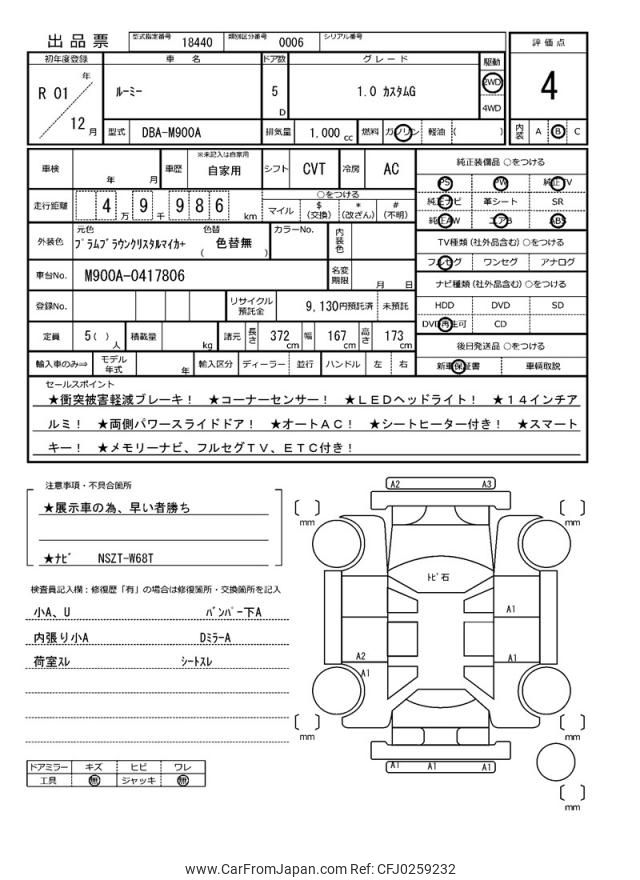 出品票 型式指定番号 18440 類別区分番号 0006 シリアル番号
評価点
4
内装 A B C
初年度登録 車名 ドア数 グレード 駆動
R 01 年 12 月 ルーミー 5 D 1.0 カスタムG 2WD 4WD
型式 DBA-M900A 排気量 1,000 cc 燃料 ガソリン 軽油 ( )
車検 年 月 車歴 ※未記入は自家用 自家用 シフト CVT 冷房 AC
走行距離 4 万 9 千 9 8 6 km ○をつける
マイル $ (交換) * (改ざん) # (不明)
外装色 元色 プラムブラウンクリスタルマイカ+ 色替 ( 色替無 ) カラーNo. 内装色
車台No. M900A-0417806 名変期限 月 日
登録No. リサイクル預託金 9,130円預託済 未預託
定員 5( ) 人 積載量 kg 諸元 長さ 372 cm 幅 167 cm 高さ 173 cm
輸入車のみ⇒ モデル年式 年 輸入区分 ディーラー 並行 ハンドル 左 右
純正装備品 ○をつける
PS PW 純正TV
純正ナビ 革シート SR
純正AW エアB ABS
TV種類(社外品含む) ○をつける
フルセグ ワンセグ アナログ
ナビ種類(社外品含む) ○をつける
HDD DVD SD
DVD再生可 CD
後日発送品 ○をつける
新車保証書 車輌取説
セールスポイント
★衝突被害軽減ブレーキ! ★コーナーセンサー! ★LEDヘッドライト! ★14インチア
ルミ! ★両側パワースライドドア! ★オートAC! ★シートヒーター付き! ★スマート
キー! ★メモリーナビ、フルセグTV、ETC付き!
注意事項・不具合箇所
★展示車の為、早い者勝ち
★ナビ NSZT-W68T
検査員記入欄:修復歴「有」の場合は修復箇所・交換箇所を記入
小A、U バンパー下A
内張り小A DミラーA
荷室スレ シートスレ
ドアミラー キズ ヒビ ワレ
工具 無 ジャッキ 無
A2 A3
mm mm
トビ石
A1
A2 A1
A1
mm mm
A1 A1 A1
mm
www.CarFromJapan.com Ref: CFJ0259232